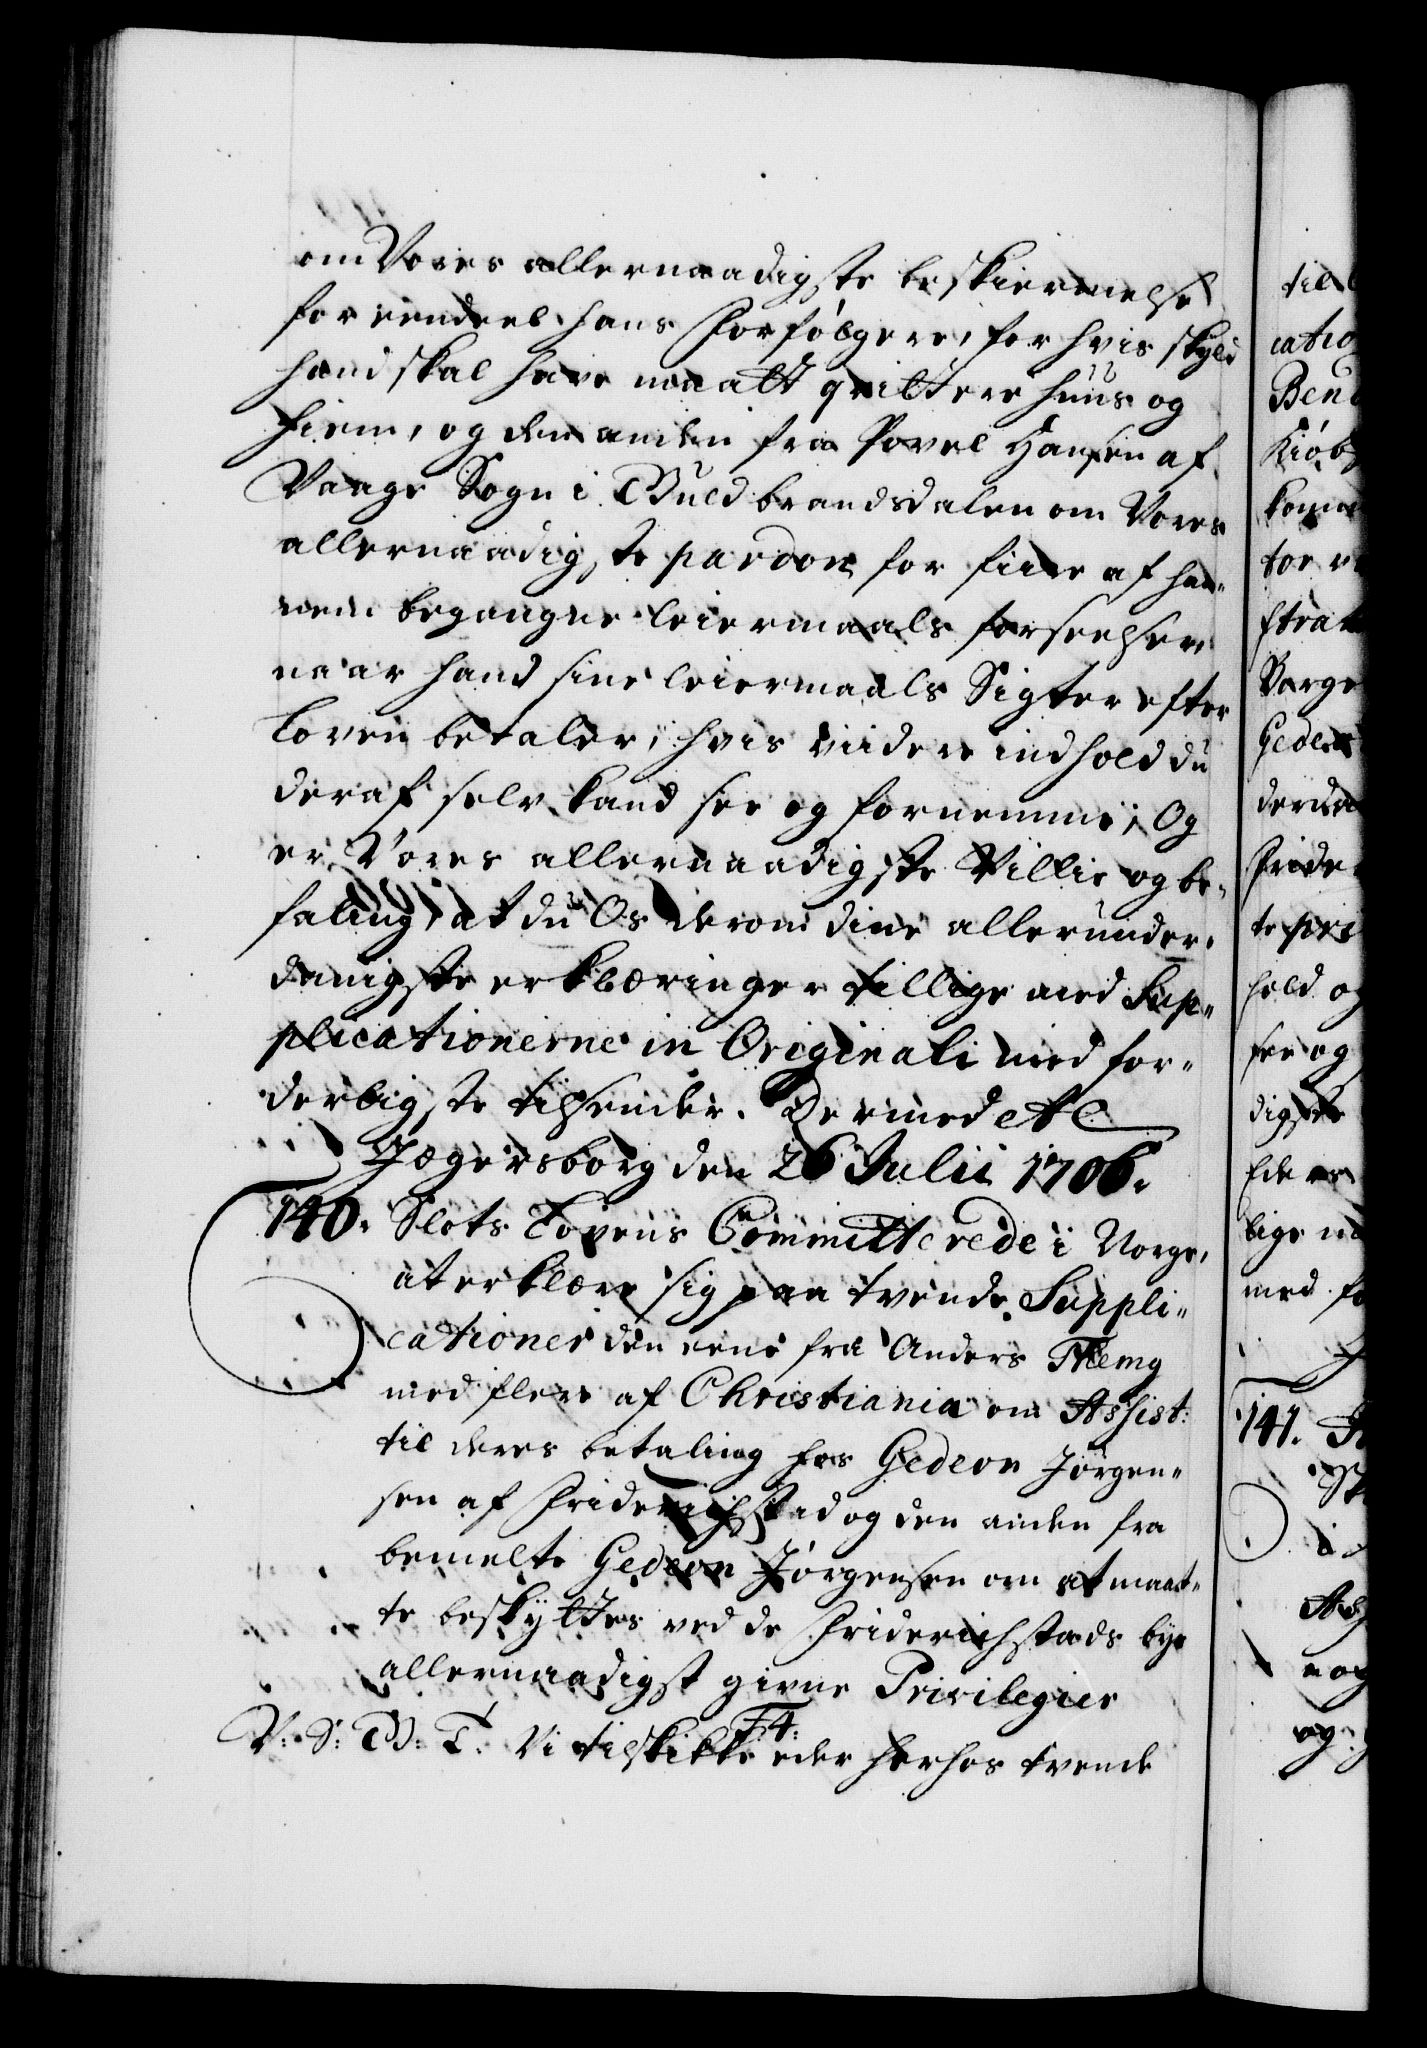 om Vores allernaadigste beskiermelse
for eendeel hans Forfølgere, for hvis skyld
hand skal have maatt qvittere huus og
hiem, og den anden fra Povel Hansen af
Vaage Sogn i Guldbrandsdalen om Vores
allernaadigste pardon for fiire af han-
nem begangne leiermaals forseelser
naar hand sine leiermaals Sigter efter
Loven betaler, hvis viidere indhold du
deraf selv kand see og fornemme; Og
er Vores allernaadigste Villie og be-
faling, at du Os derom dine allerunder-
danigste erklæringer tillige med Sup-
plicationerne in Originali med for-
derligste tilsender. Dermed etc
Jægersborg den 26 Julii 1706.
140. Slots Lovens Committerede i Norge,
at erklære sig paa tvende Suppli-
cationer den eene fra Anders Flemg
med flere af Christiania om Assist:
til deres betaling hos Gedeon Jørgen-
sen af Friderichstad og den anden fra
bemelte Gedeon Jørgensen om at maat-
te beskyttes ved de Friderichstads bye
allernaadigst givne Privilegier
V: S: G: T. Vi tilskikke eder herhos tvende
til
catio
Ben
Kiøb
tor
stra
Borge
Gede
derna
Fride
te pri
hold og
see og
digste
Eders
lige
med fo
141.
og